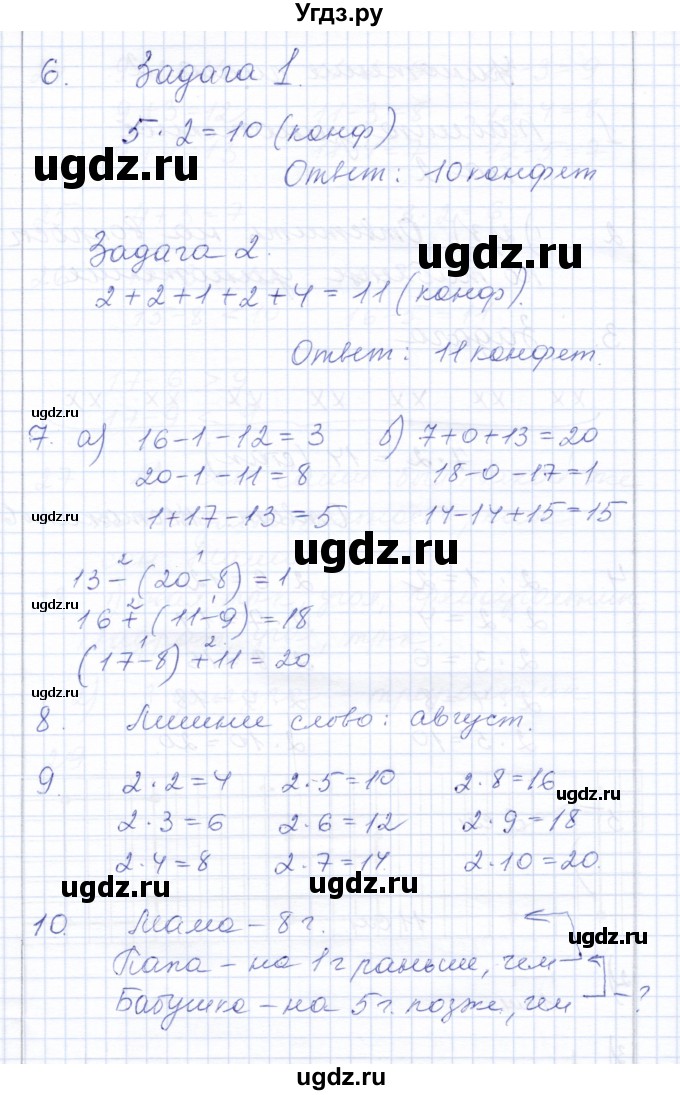 Угдз.ру
6. Задача 1.
5 · 2 = 10 (конф)
ugdz.ru
Ответ: 10 конфет
Задача 2.
ugdz.ru
2 + 2 + 1 + 2 + 4 = 11 (конф).
Ответ: 11 конфет.
ugdz.ru
7. а) 16 - 1 - 12 = 3 б) 7 + 0 + 13 = 20
20 - 1 - 11 = 8 18 - 0 - 17 = 1
ugdz.ru
1 + 17 - 13 = 5 14 - 14 + 15 = 15
ugdz.ru
2 1
13 - (20 - 8) = 1
ugdz.ru
2 1
16 + (11 - 9) = 18
1 2
(17 - 8) + 11 = 20
ugdz.ru
8. Лишние слово: август.
9. 2 · 2 = 4 2 · 5 = 10 2 · 8 = 16
ugdz.ru
2 · 3 = 6 2 · 6 = 12 2 · 9 = 18
2 · 4 = 8 2 · 7 = 14 2 · 10 = 20.
ugdz.ru ugdz.ru
10. Мама - 8 г.
ugdz.ru
Папа - на 1 г раньше, чем
Бабушка - на 5 г. позже, чем - ?
ugdz.ru